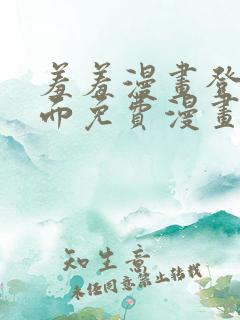 羞羞漫畫登
而免費漫畫
知生意
未经同意禁止转载